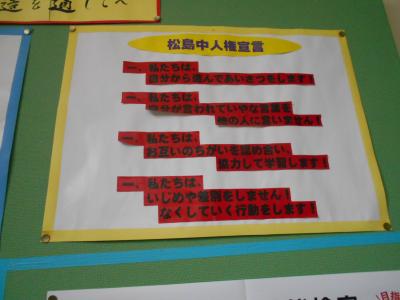 道を通して
松島中人権宣言
一、私たちは、
自分から進んであいさつをします！
一、私たちは、
自分が言われていやな言葉を
他の人に言いません！
一、私たちは、
お互いのちがいを認め合い、
協力して学習します！
一、私たちは、
いじめや差別をしません！
なくしていく行動をします！